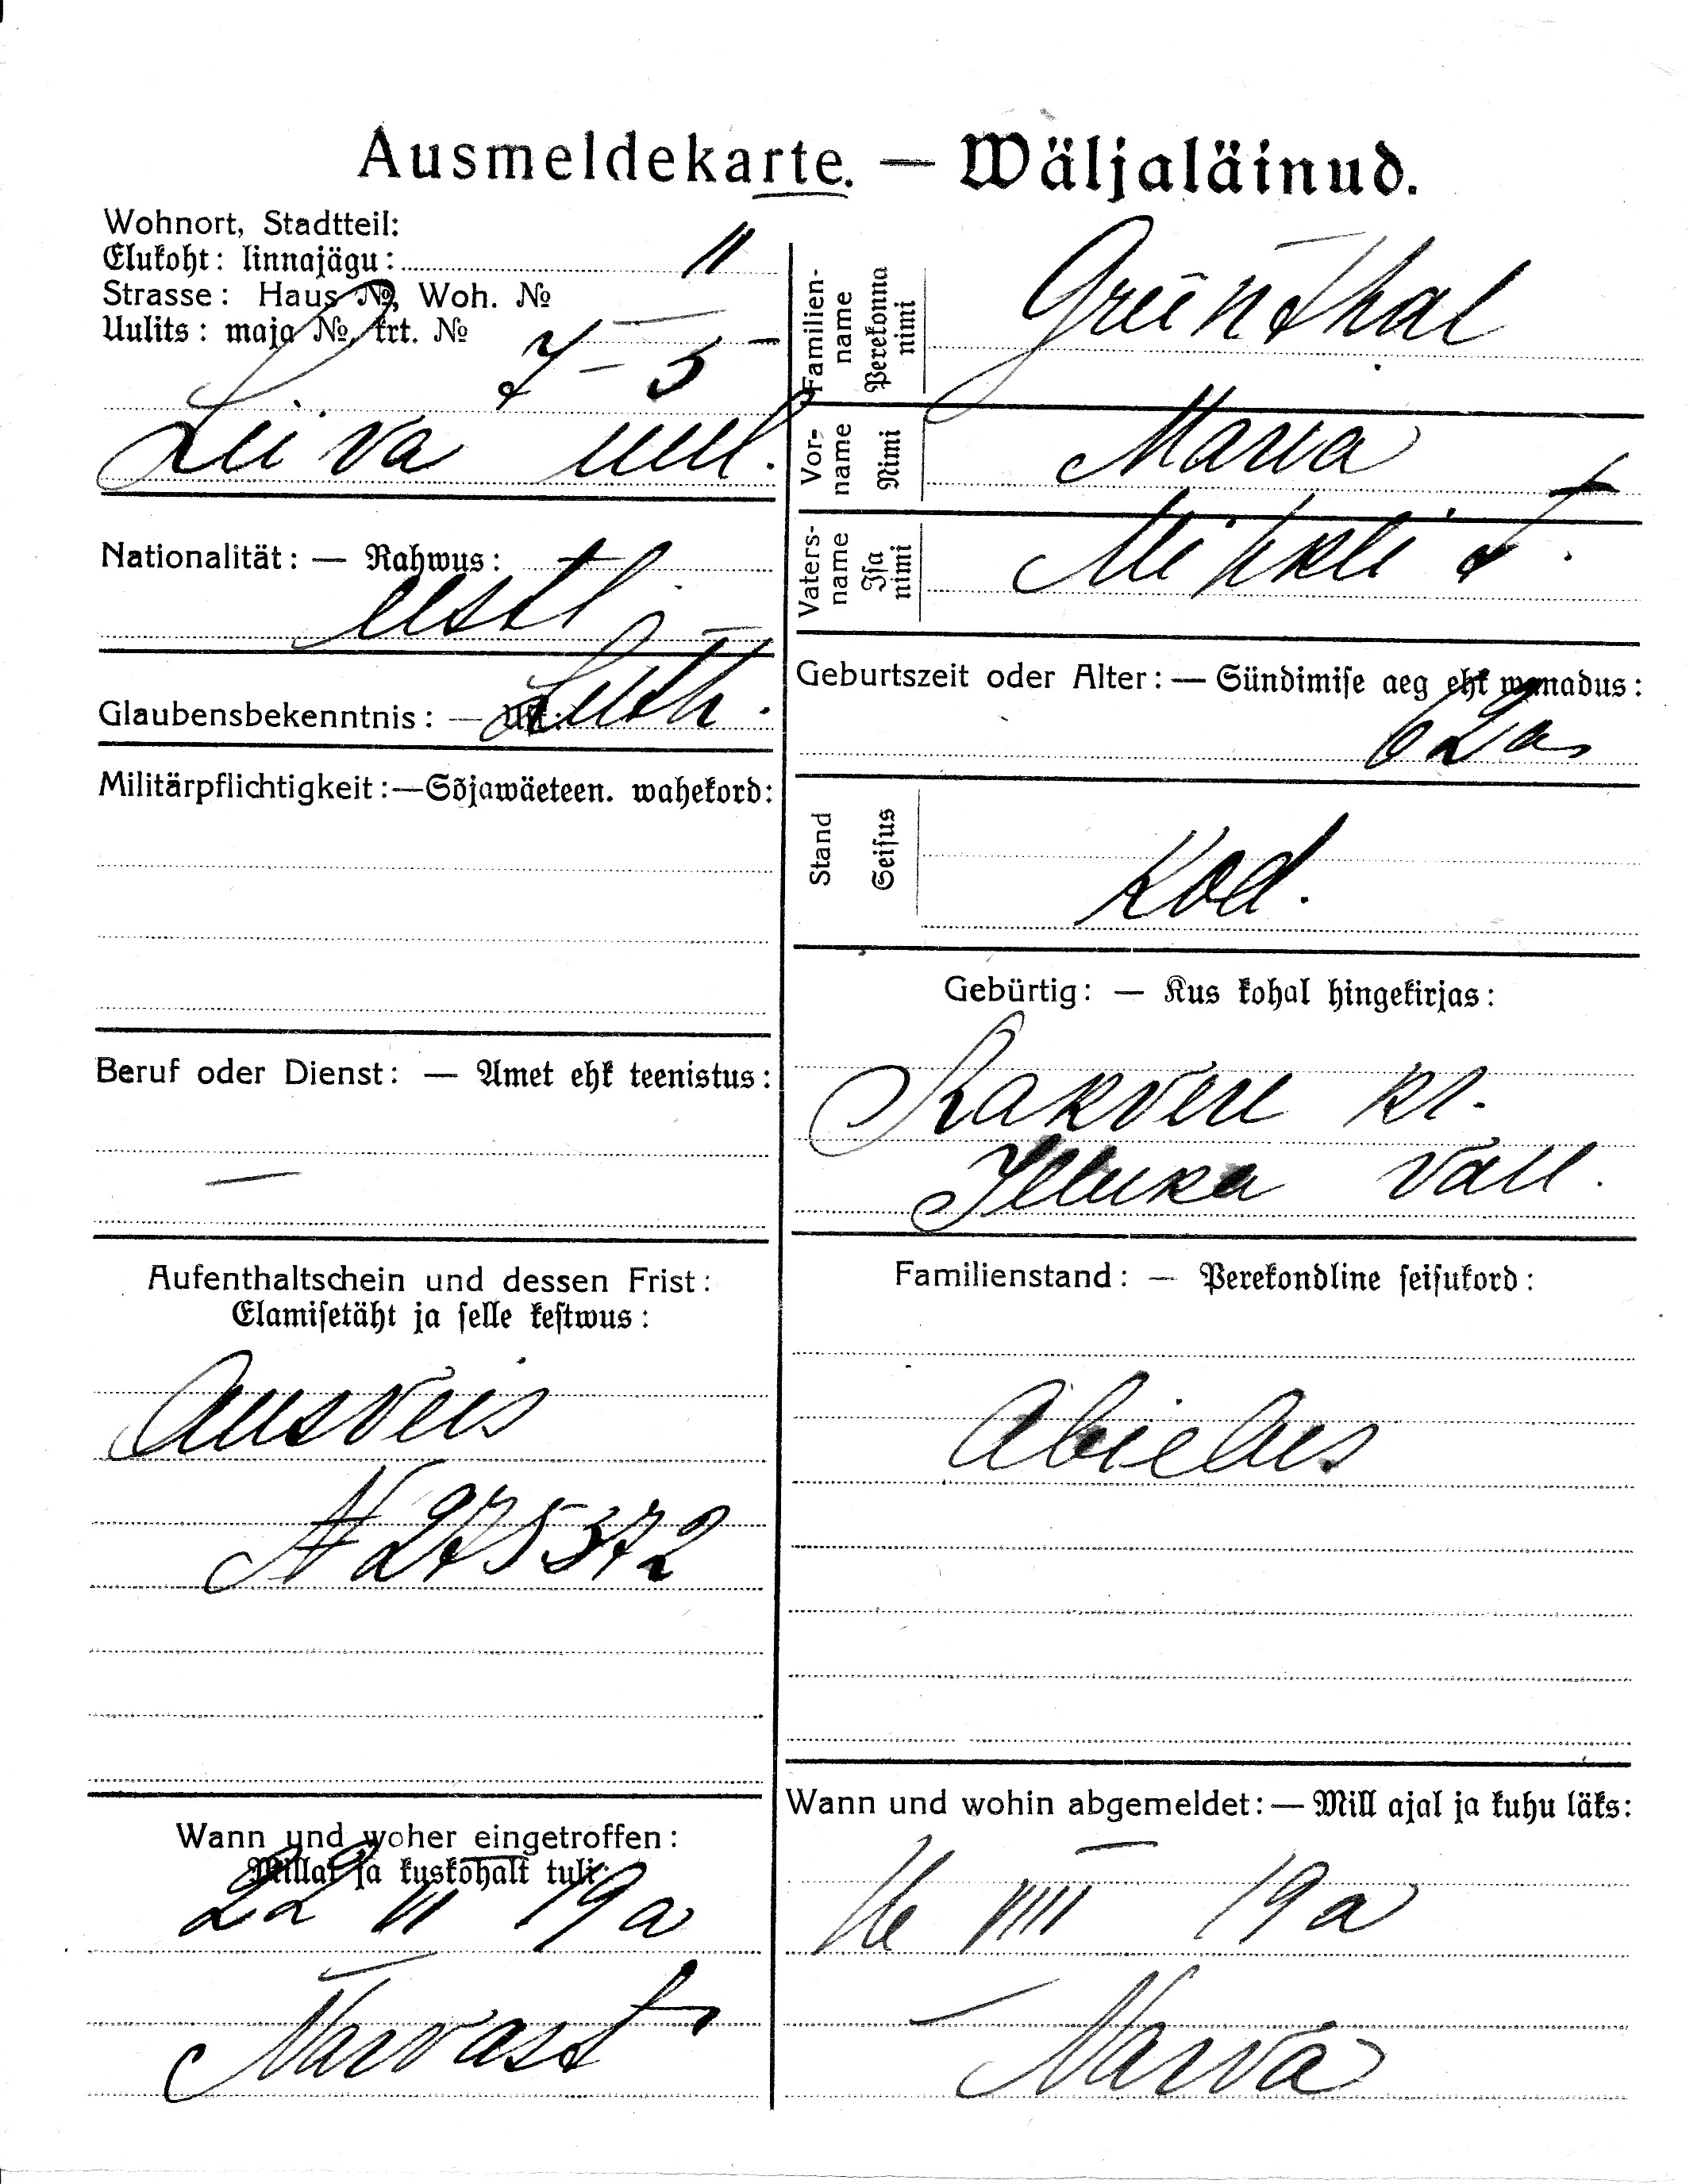 Ausmeldekarte. — Wäljaläinud.
Wohnort, Stadtteil:
Elukoht: linnajägu: II
Strasse: Haus №, Woh. №
Uulits: maja №, krt. №
7 – 5
Leiva uul.
Nationalität: — Rahwus:
eestl.
Glaubensbekenntnis: — Usk: Luth.
Militärpflichtigkeit:—Sõjawäeteen. wahekord:
Beruf oder Dienst: — Amet ehk teenistus:
—
Aufenthaltschein und dessen Frist:
Elamisetäht ja selle kestwus:
Ausveis
N 275372
Wann und woher eingetroffen:
Millal ja kuskohalt tuli:
22 VI 19 a
Narvast
Familien-name Perekonna nimi
Grünthal
Vor-name Nimi
Maria
Vaters-name Isa nimi
Mihkli t.
Geburtszeit oder Alter: — Sündimise aeg ehk wanadus:
62 a
Stand Seisus
Kod.
Gebürtig: — Kus kohal hingekirjas:
Rakvere kr.
Illuka vall.
Familienstand: — Perekondline seisukord:
Abielus
Wann und wohin abgemeldet: — Mill ajal ja kuhu läks:
16 VIII 19 a
Narva